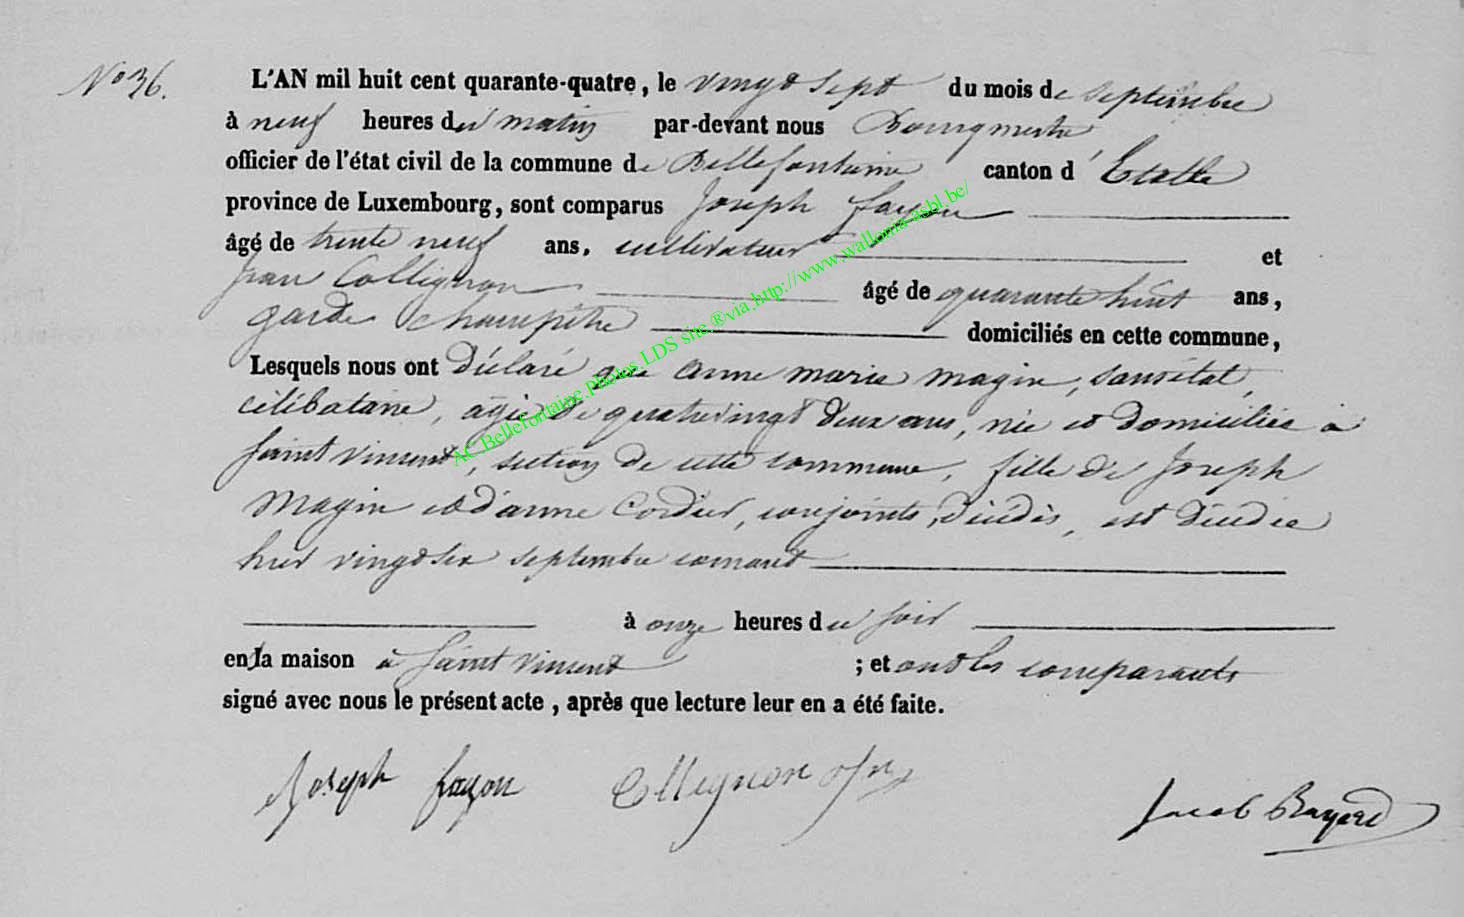 N° 36.
L'AN mil huit cent quarante-quatre, le vingt sept du mois de septembre
à neuf heures du matin par-devant nous Bourgmestre
officier de l'état civil de la commune de Bellefontaine canton d'Etalle
province de Luxembourg, sont comparus Joseph fayon
âgé de trente neuf ans, cultivateur et
Jean Collignon âgé de quarante huit ans,
garde champêtre domiciliés en cette commune,
Lesquels nous ont Déclaré que anne marie magin, sans état,
célibataire, agée de quatrevingt deux ans, née et domiciliée à
saint vincent, section de cette commune, fille de Joseph
magin et d'anne Cordier, conjoints, décédés, est décédée
hier vingt six septembre courant
à onze heures du soir
en sa maison à saint vincent ; et ont les comparants
signé avec nous le présent acte, après que lecture leur en a été faite.
Joseph fayon Collignon Jacob Bayard
AC Bellefontaine.photos LDS site ®via.http://www.wallonia-asbl.be/